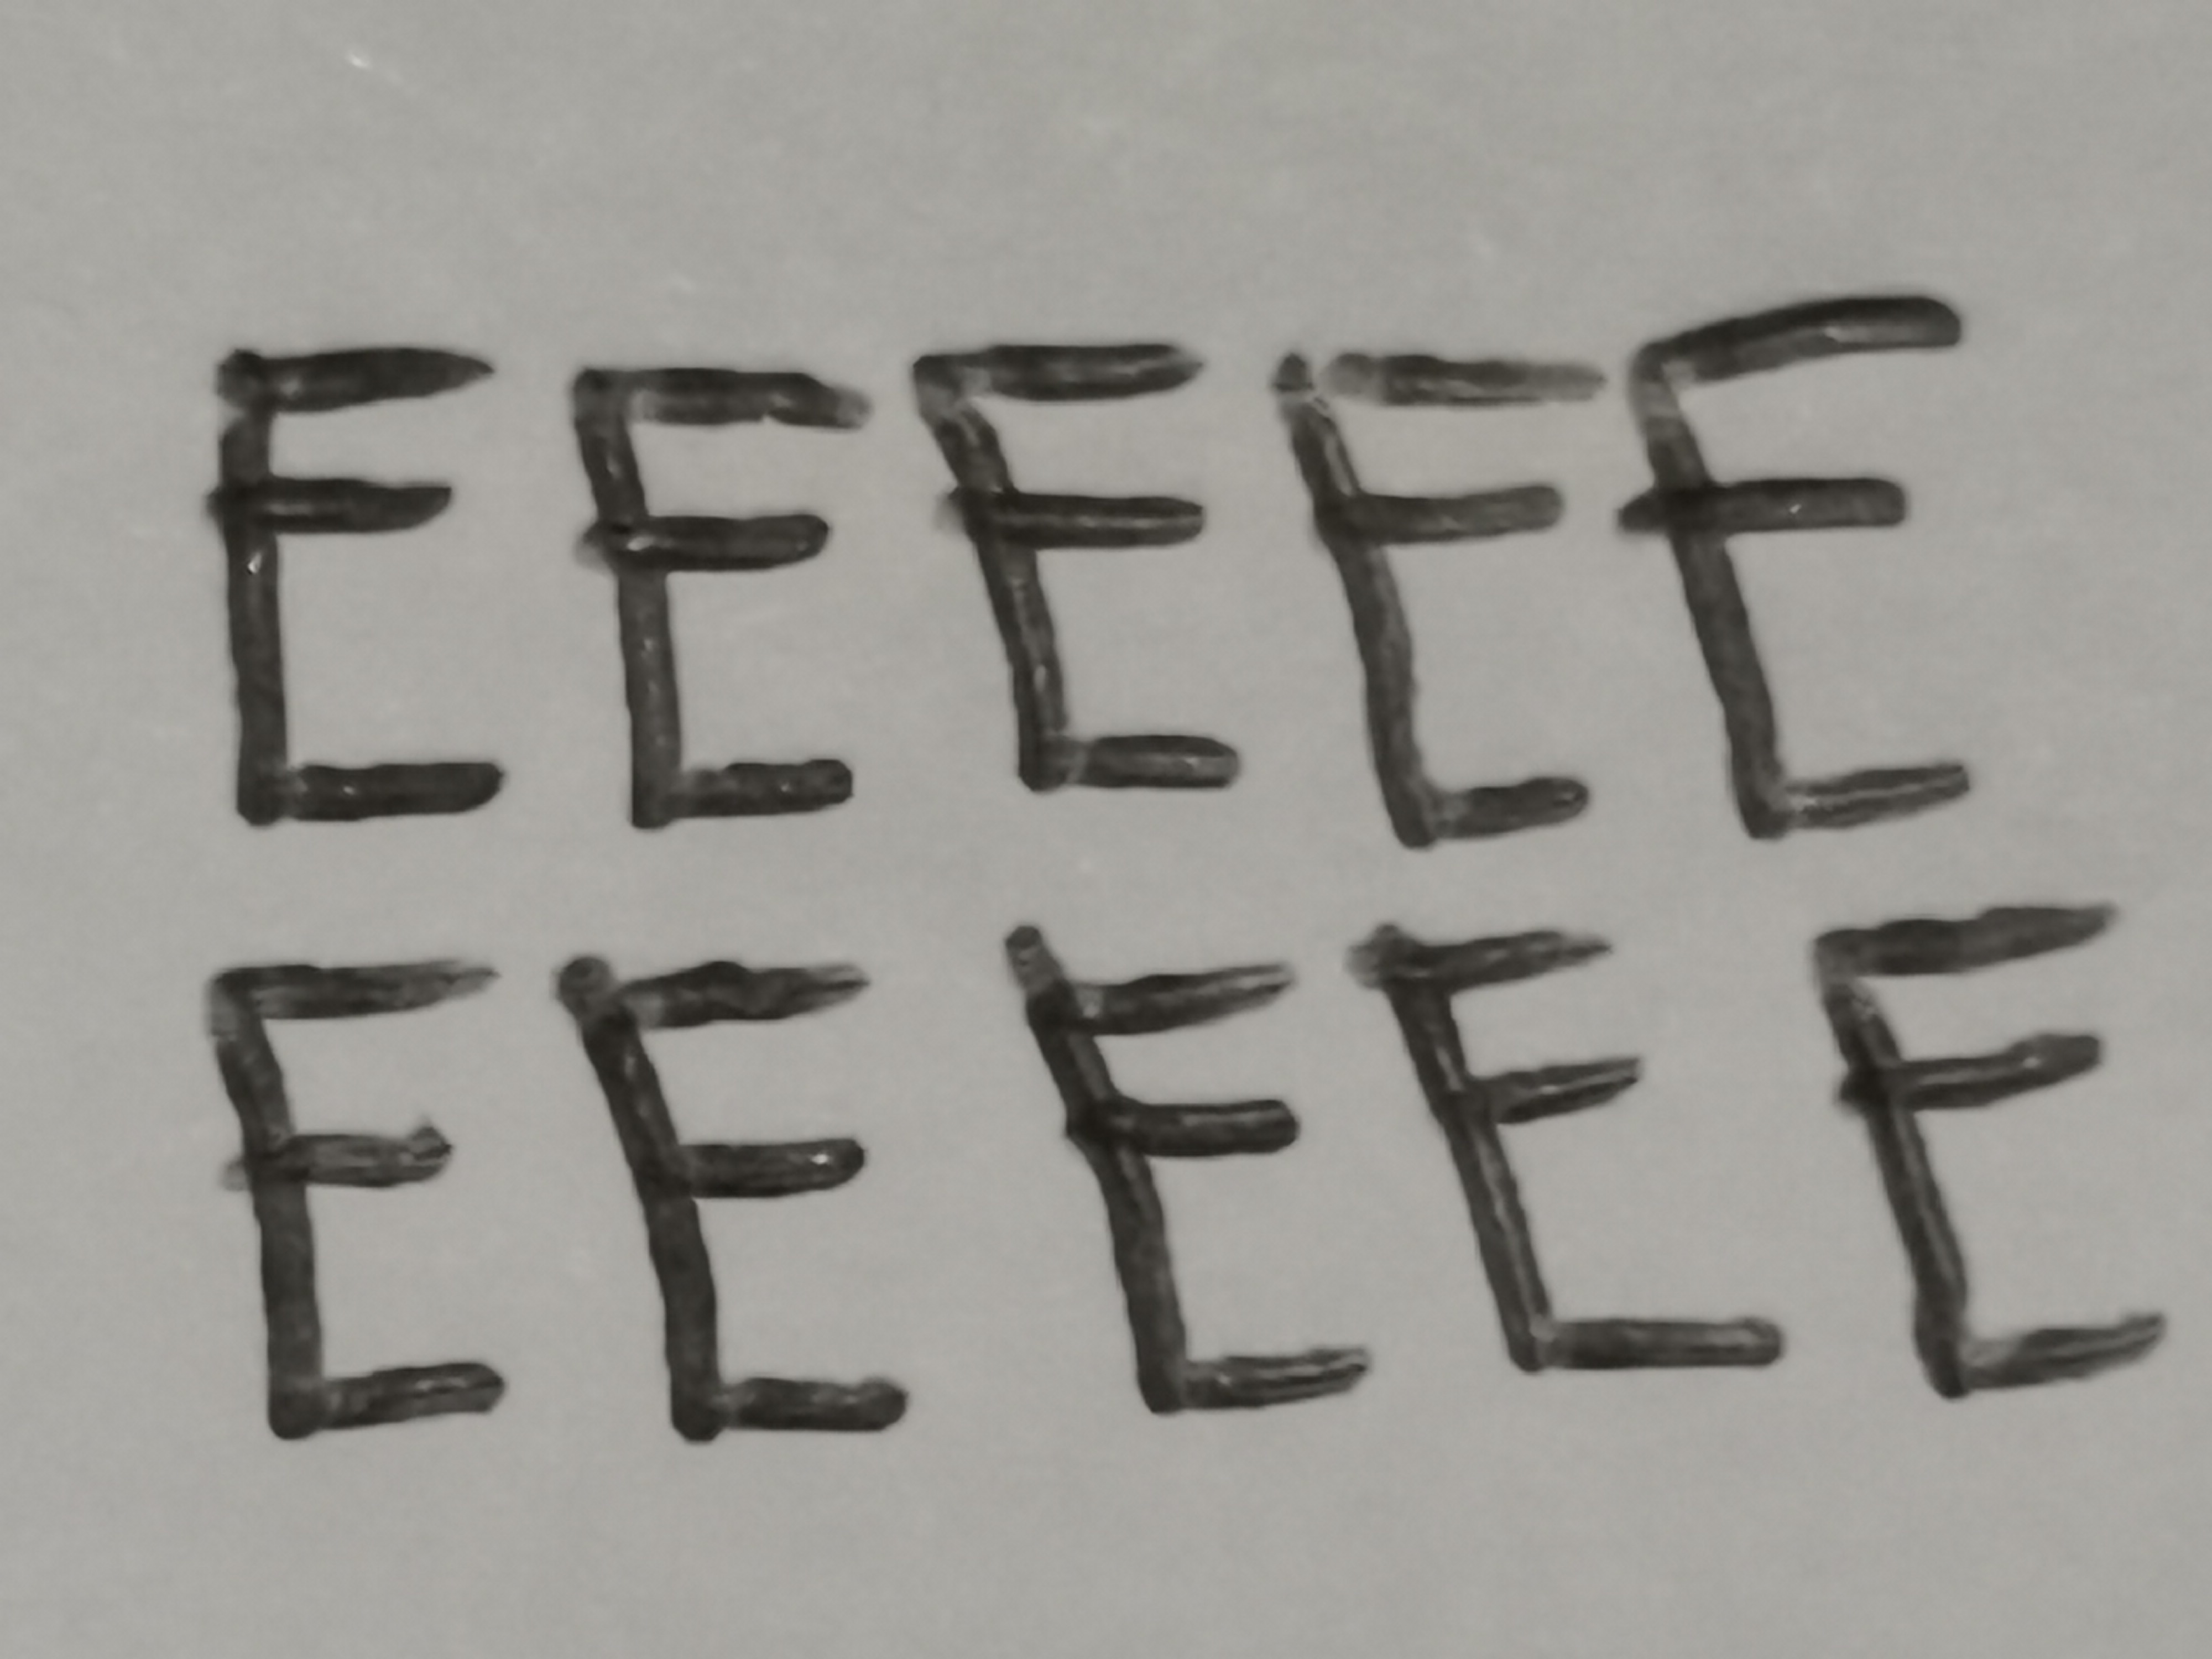 EEEEE
EEEEE